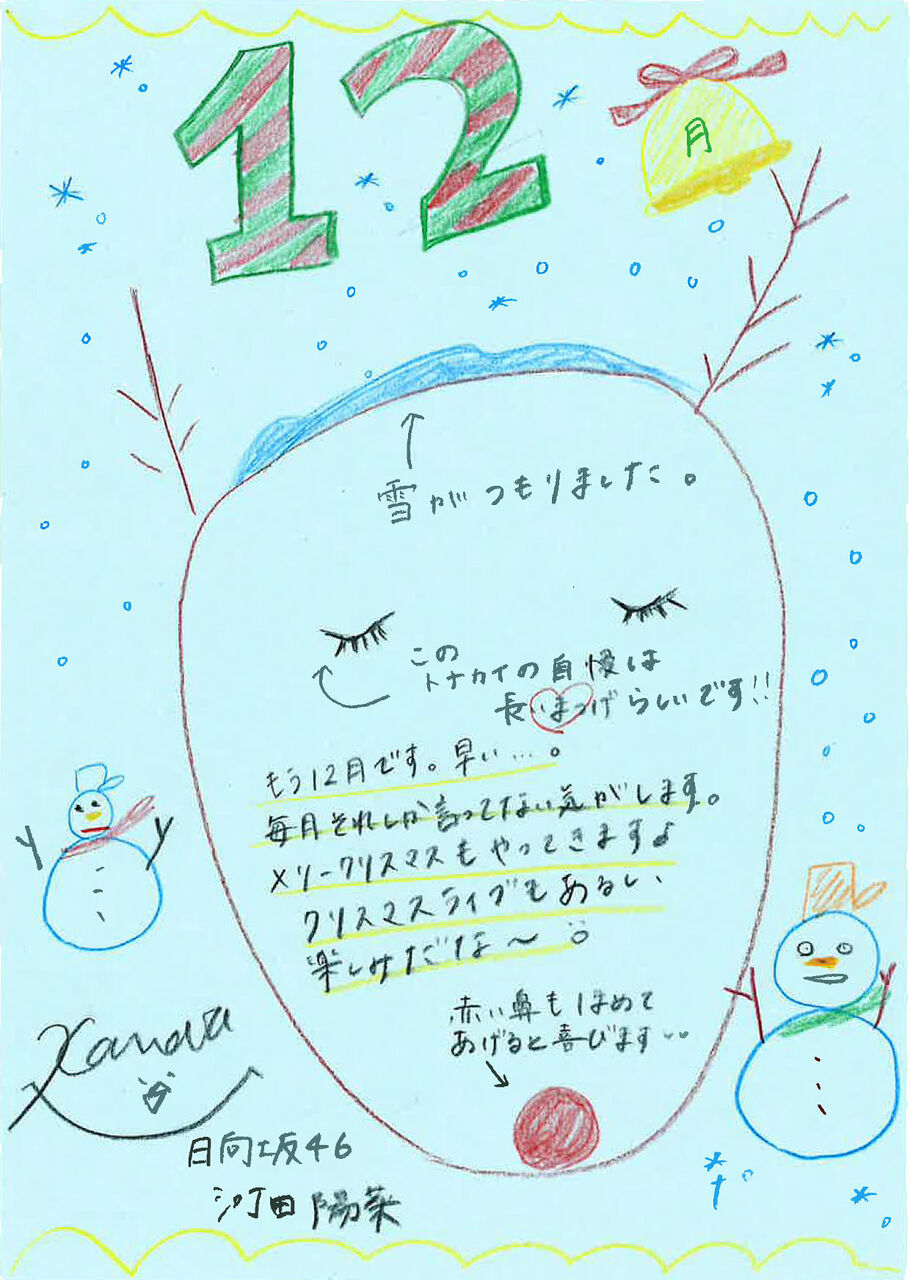 12
月
雪がつもりました。
この
トナカイの自慢は
長いまつげらしいです!!
もう12月です。早い…。
毎月それしか言ってない気がします。
メリークリスマスもやってきます♪
クリスマスライブもあるし、
楽しみだな〜
赤い鼻もほめて
あげると喜びます
Kanata
日向坂46
河田陽菜